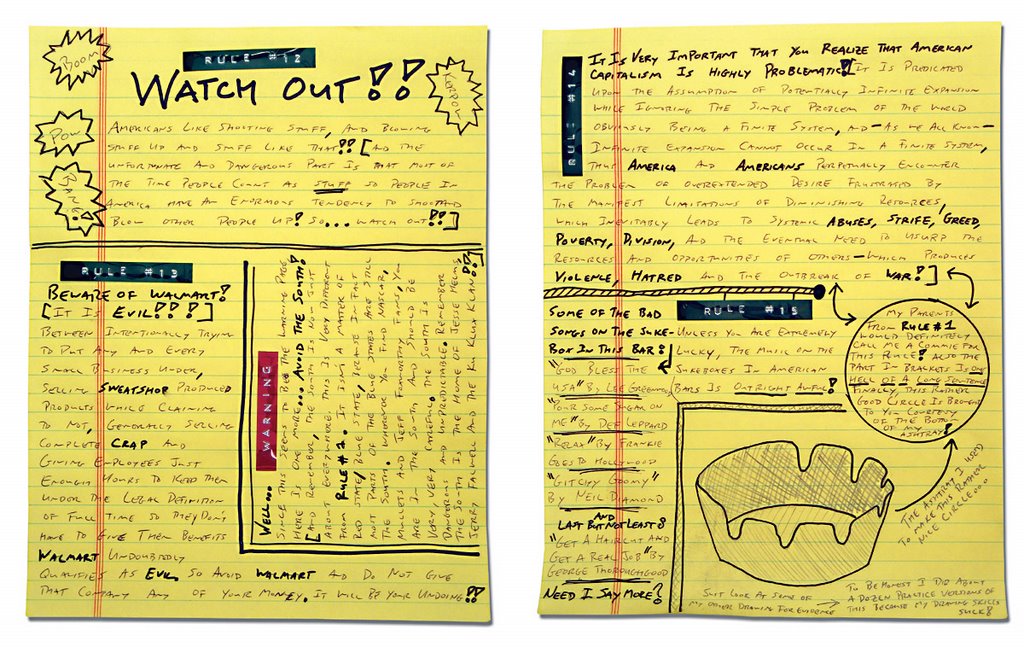 BOOM
RULE #12
WATCH OUT!!
KAPOW!
POW
BLAME!
AMERICANS LIKE SHOOTING STUFF, AND BLOWING
STUFF UP AND STUFF LIKE THAT!! [AND THE
UNFORTUNATE AND DANGEROUS PART IS THAT MOST OF
THE TIME PEOPLE COUNT AS STUFF SO PEOPLE IN
AMERICA HAVE AN ENORMOUS TENDENCY TO SHOOT AND
BLOW OTHER PEOPLE UP! SO... WATCH OUT!!]
RULE #13
BEWARE OF WALMART!
[IT IS EVIL!!!]
BETWEEN INTENTIONALLY TRYING
TO PUT ANY AND EVERY
SMALL BUSINESS UNDER,
SELLING SWEATSHOP PRODUCED
PRODUCTS WHILE CLAIMING
TO NOT, GENERALLY SELLING
COMPLETE CRAP AND
GIVING EMPLOYEES JUST
ENOUGH HOURS TO KEEP THEM
UNDER THE LEGAL DEFINITION
OF FULL TIME SO THEY DON'T
HAVE TO GIVE THEM BENEFITS
WALMART UNDOUBTEDLY
QUALIFIES AS EVIL, SO AVOID WALMART AND DO NOT GIVE
THAT COMPANY ANY OF YOUR MONEY. IT WILL BE YOUR UNDOING!!
WARNING
WELL...
SINCE THIS SEEMS TO BE THE WARNING PAGE
HERE IS ONE MORE... AVOID THE SOUTH!
[AND REMEMBER, THE SOUTH IS NOW JUST
ABOUT EVERYWHERE. THIS IS VERY DIFFERENT
FROM RULE #1. IT ISN'T A MATTER OF
RED STATE/BLUE STATE, BECAUSE IN FACT
MOST PARTS OF THE BLUE STATES ARE STILL
THE SOUTH. WHEREVER YOU FIND NASCAR,
MULLETS AND JEFF FOXWORTHY FANS, YOU
ARE IN THE SOUTH AND SHOULD BE
VERY, VERY CAREFUL. THE SOUTH IS
DANGEROUS AND UNPREDICTABLE. REMEMBER
THE SOUTH IS THE HOME OF JESSE HELMS,
JERRY FALWELL AND THE KU KLUX KLAN!!]
RULE #14
IT IS VERY IMPORTANT THAT YOU REALIZE THAT AMERICAN
CAPITALISM IS HIGHLY PROBLEMATIC! [IT IS PREDICATED
UPON THE ASSUMPTION OF POTENTIALLY INFINITE EXPANSION
WHILE IGNORING THE SIMPLE PROBLEM OF THE WORLD
OBVIOUSLY BEING A FINITE SYSTEM, AND—AS WE ALL KNOW—
INFINITE EXPANSION CANNOT OCCUR IN A FINITE SYSTEM,
THUS AMERICA AND AMERICANS PERPETUALLY ENCOUNTER
THE PROBLEM OF OVEREXTENDED DESIRE FRUSTRATED BY
THE MANIFEST LIMITATIONS OF DIMINISHING RESOURCES,
WHICH INEVITABLY LEADS TO SYSTEMIC ABUSES, STRIFE, GREED,
POVERTY, DIVISION, AND THE EVENTUAL NEED TO USURP THE
RESOURCES AND OPPORTUNITIES OF OTHERS—WHICH PRODUCES
VIOLENCE, HATRED AND THE OUTBREAK OF WAR!]
MY PARENTS
FROM RULE #1
WOULD DEFINITELY
CALL ME A COMMIE FOR
THIS RULE! ALSO THE
PART IN BRACKETS IS ONE
HELL OF A LONG SENTENCE
FINALLY, THIS RATHER
GOOD CIRCLE IS BROUGHT
TO YOU COURTESY
OF THE BOTTOM
OF MY
ASHTRAY!
RULE #15
UNLESS YOU ARE EXTREMELY
LUCKY, THE MUSIC ON THE
JUKEBOXES IN AMERICAN
BARS IS OUTRIGHT AWFUL!
SOME OF THE BAD
SONGS ON THE JUKE-
BOX IN THIS BAR:
"GOD BLESS THE
USA" BY LEE GREENWOOD
"POUR SOME SUGAR ON
ME" BY DEF LEPPARD
"RELAX" BY FRANKIE
GOES TO HOLLYWOOD
"GITCHY GOOMY"
BY NEIL DIAMOND
AND
LAST BUT NOT LEAST:
"GET A HAIRCUT AND
GET A REAL JOB" BY
GEORGE THOROUGHGOOD
NEED I SAY MORE?
THE ASHTRAY I USED
TO MAKE THIS RATHER
NICE CIRCLE...
JUST LOOK AT SOME OF
MY OTHER DRAWING FOR EVIDENCE
TO BE HONEST I DID ABOUT
A DOZEN PRACTICE VERSIONS OF
THIS BECAUSE MY DRAWING SKILLS
SUCK!